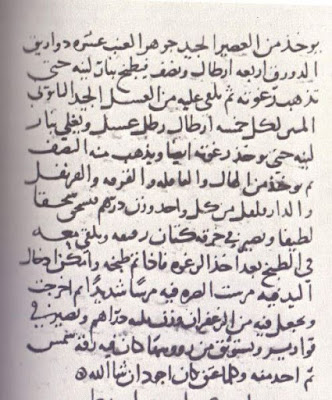 يوخذ من العصير الجيد جوهر العنب عشره دواريق
الدورق اربعه ارطال ونصف فيطبخ بنار لينه حتى
تذهب رغوته ثم يلقى عليه من العسل الجيد
لكل خمسه ارطال رطل عسل ويغلى بنار
لينه حتى يوخذ رغوته ايضا ويذهب منه النصف
ثم يوخذ من الهال والقاقله والقرفه والقرنفل
والدارفلفل من كل واحد وزن درهم سحقا
لطيفا ويصير في خرقه كتان رفيعه ويلقى معه
في الطبخ بعد اخذ الرغوه فاذا تم طبخه وامكن ادخال
اليد فيه مرست الصره فيه مرسا شديدا ثم اخرجت
ويجعل فيه من الزعفران دراهم ويصير في
قوارير ويستوثق من روسها فانه شمس
ثم احد منه وكلما عتق كان اجود ان شا الله